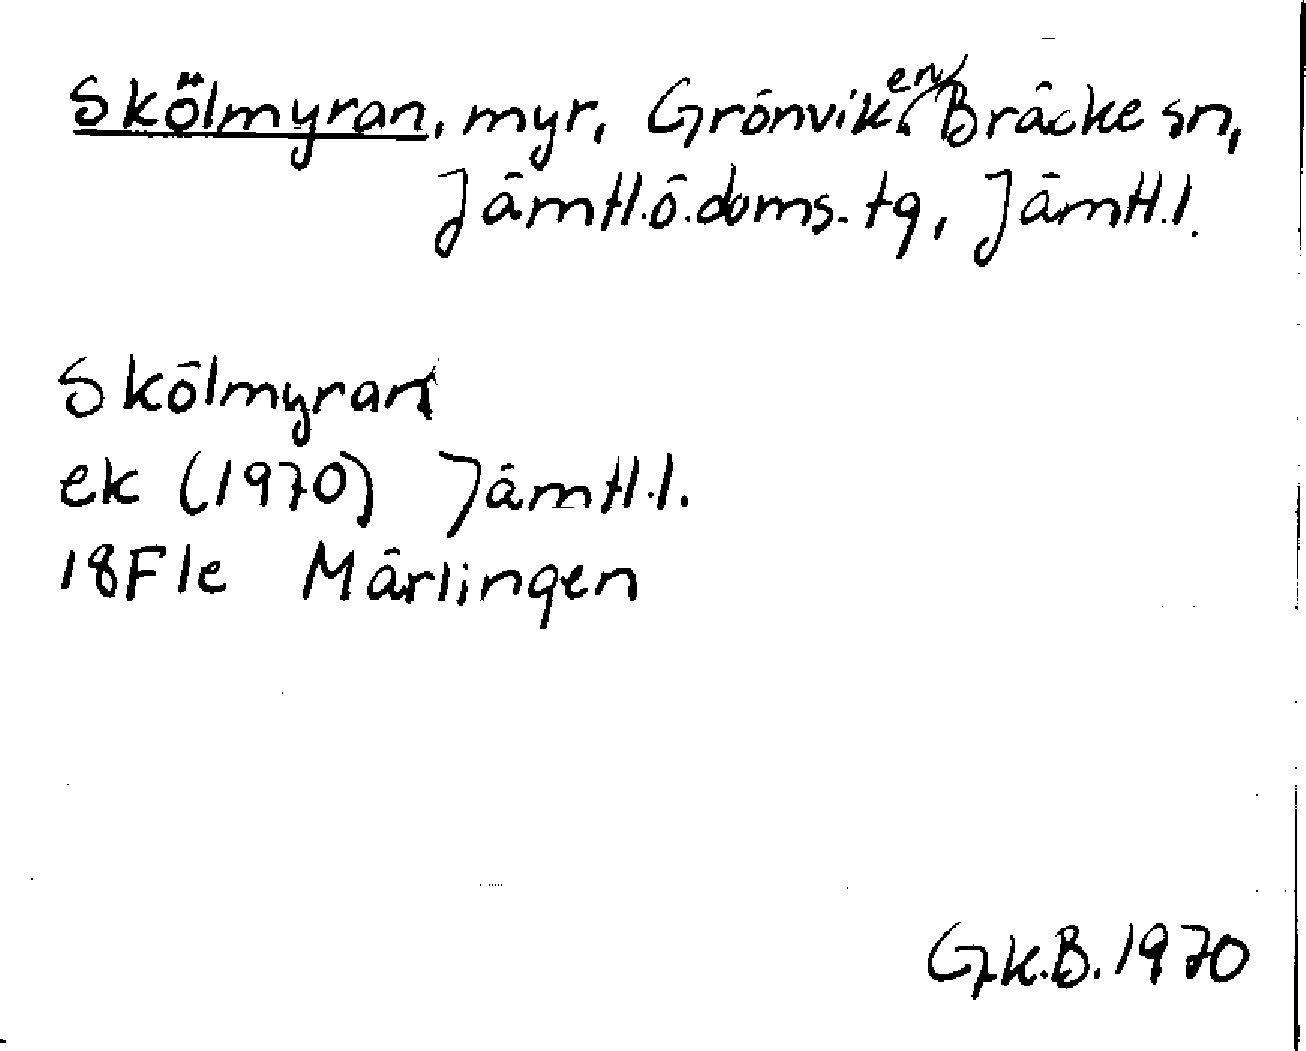 Skölmyran, myr, Grönviken, Bräcke sn,
Jämtl.ö.doms.tg, Jämtl.l.
Skölmyran
ek (1970) Jämtl.l.
18F1e Märlingen
G.K.B. 1970